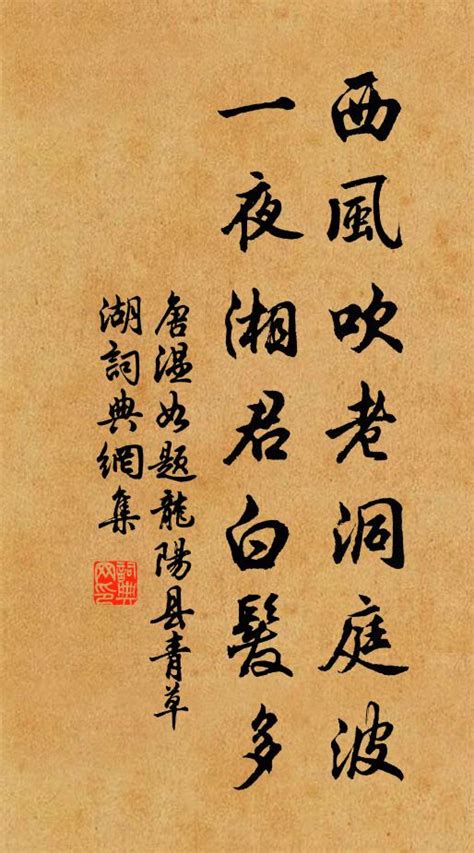 西風吹老洞庭波
一夜湘君白髮多
唐温如題龍陽县青草
湖詞典網集
詞典
网印